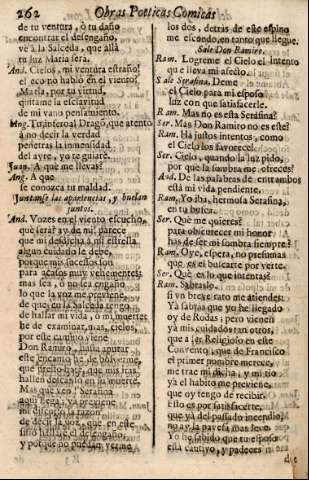 262 Obras Poeticas Comicas
de tu ventura, ò tu daño
encontrar el desengaño,
vè à la Salceda, que allà
tu luz Maria serà.
And. Cielos, mi ventura estraño!
el eco no hablò en el viento?
Maria, por tu virtud,
quitame la esclavitud
de mi vano pensamiento.
Ang. Tu infernal Drago, que atento
à no decir la verdad
penetras la inmensidad
del ayre, yo te guiarè.
Juan. A què me llevas?
Ang. A que
se conozca tu maldad.
Juntanse las apariencias, y buelan
juntos.
And. Vozes en el viento escucho,
què serà? ay de mi! parece
que mi desdicha à mi estrella
algun cuidado le debe,
porque mis sucessos son
para acasos muy vehementes,
mas sea, ò no sea engaño
lo que la voz me previene,
de que en la Salceda espere
de hallar mi vida, ò mi muerte,
he de examinar, mas, cielos,
por este camino viene
Don Ramiro, hasta apurar
este encanto he de bolverme,
que presto harè, que mis iras
hallen descanso en su muerte.
Mas què veo! Serafina
aqui llega, ya previene
mi discurso la razon
de decir la voz, que en este
sitio hallarè el desengaño,
y porque no puedan verme
los dos, detràs de este espino
me escondo, en tanto que llegue.
Sale Don Ramiro.
Ram. Logreme el Cielo el intento
que lleva mi afecto.
Sale Serafina. Deme
el Cielo para mi esposo
luz con que satisfacerle.
Ram. Mas no es esta Serafina?
Ser. Mas Don Ramiro no es este?
Ram. Ha justos intentos, como
el Cielo los favorece!
Ser. Cielo, quando la luz pido,
por què la sombra me ofreces?
And. De las palabras de entrambos
està mi vida pendiente.
Ram. Yo iba, hermosa Serafina,
en tu busca.
Ser. Què me quieres?
para obscurecer mi honor
has de ser mi sombra siempre?
Ram. Oye, espera, no presumas
que es el buscarte por verte.
Ser. Què es lo que intentas?
Ram. Sabràslo,
si vn breve rato me atiendes:
Ya sabràs que yo he llegado
oy de Rodas; pero vienen
yà mis cuidados tan otros,
que à ser Religioso en este
Convento, que de Francisco
el primer nombre merece,
me trae mi dicha, y mi tio
yà el habito me previene,
que oy tengo de recibir.
Esto es por satisfacerte,
que yà del passado incendio
no ay la pavesa mas leve.
Yo he sabido que tu esposo
està cautivo, y padeces